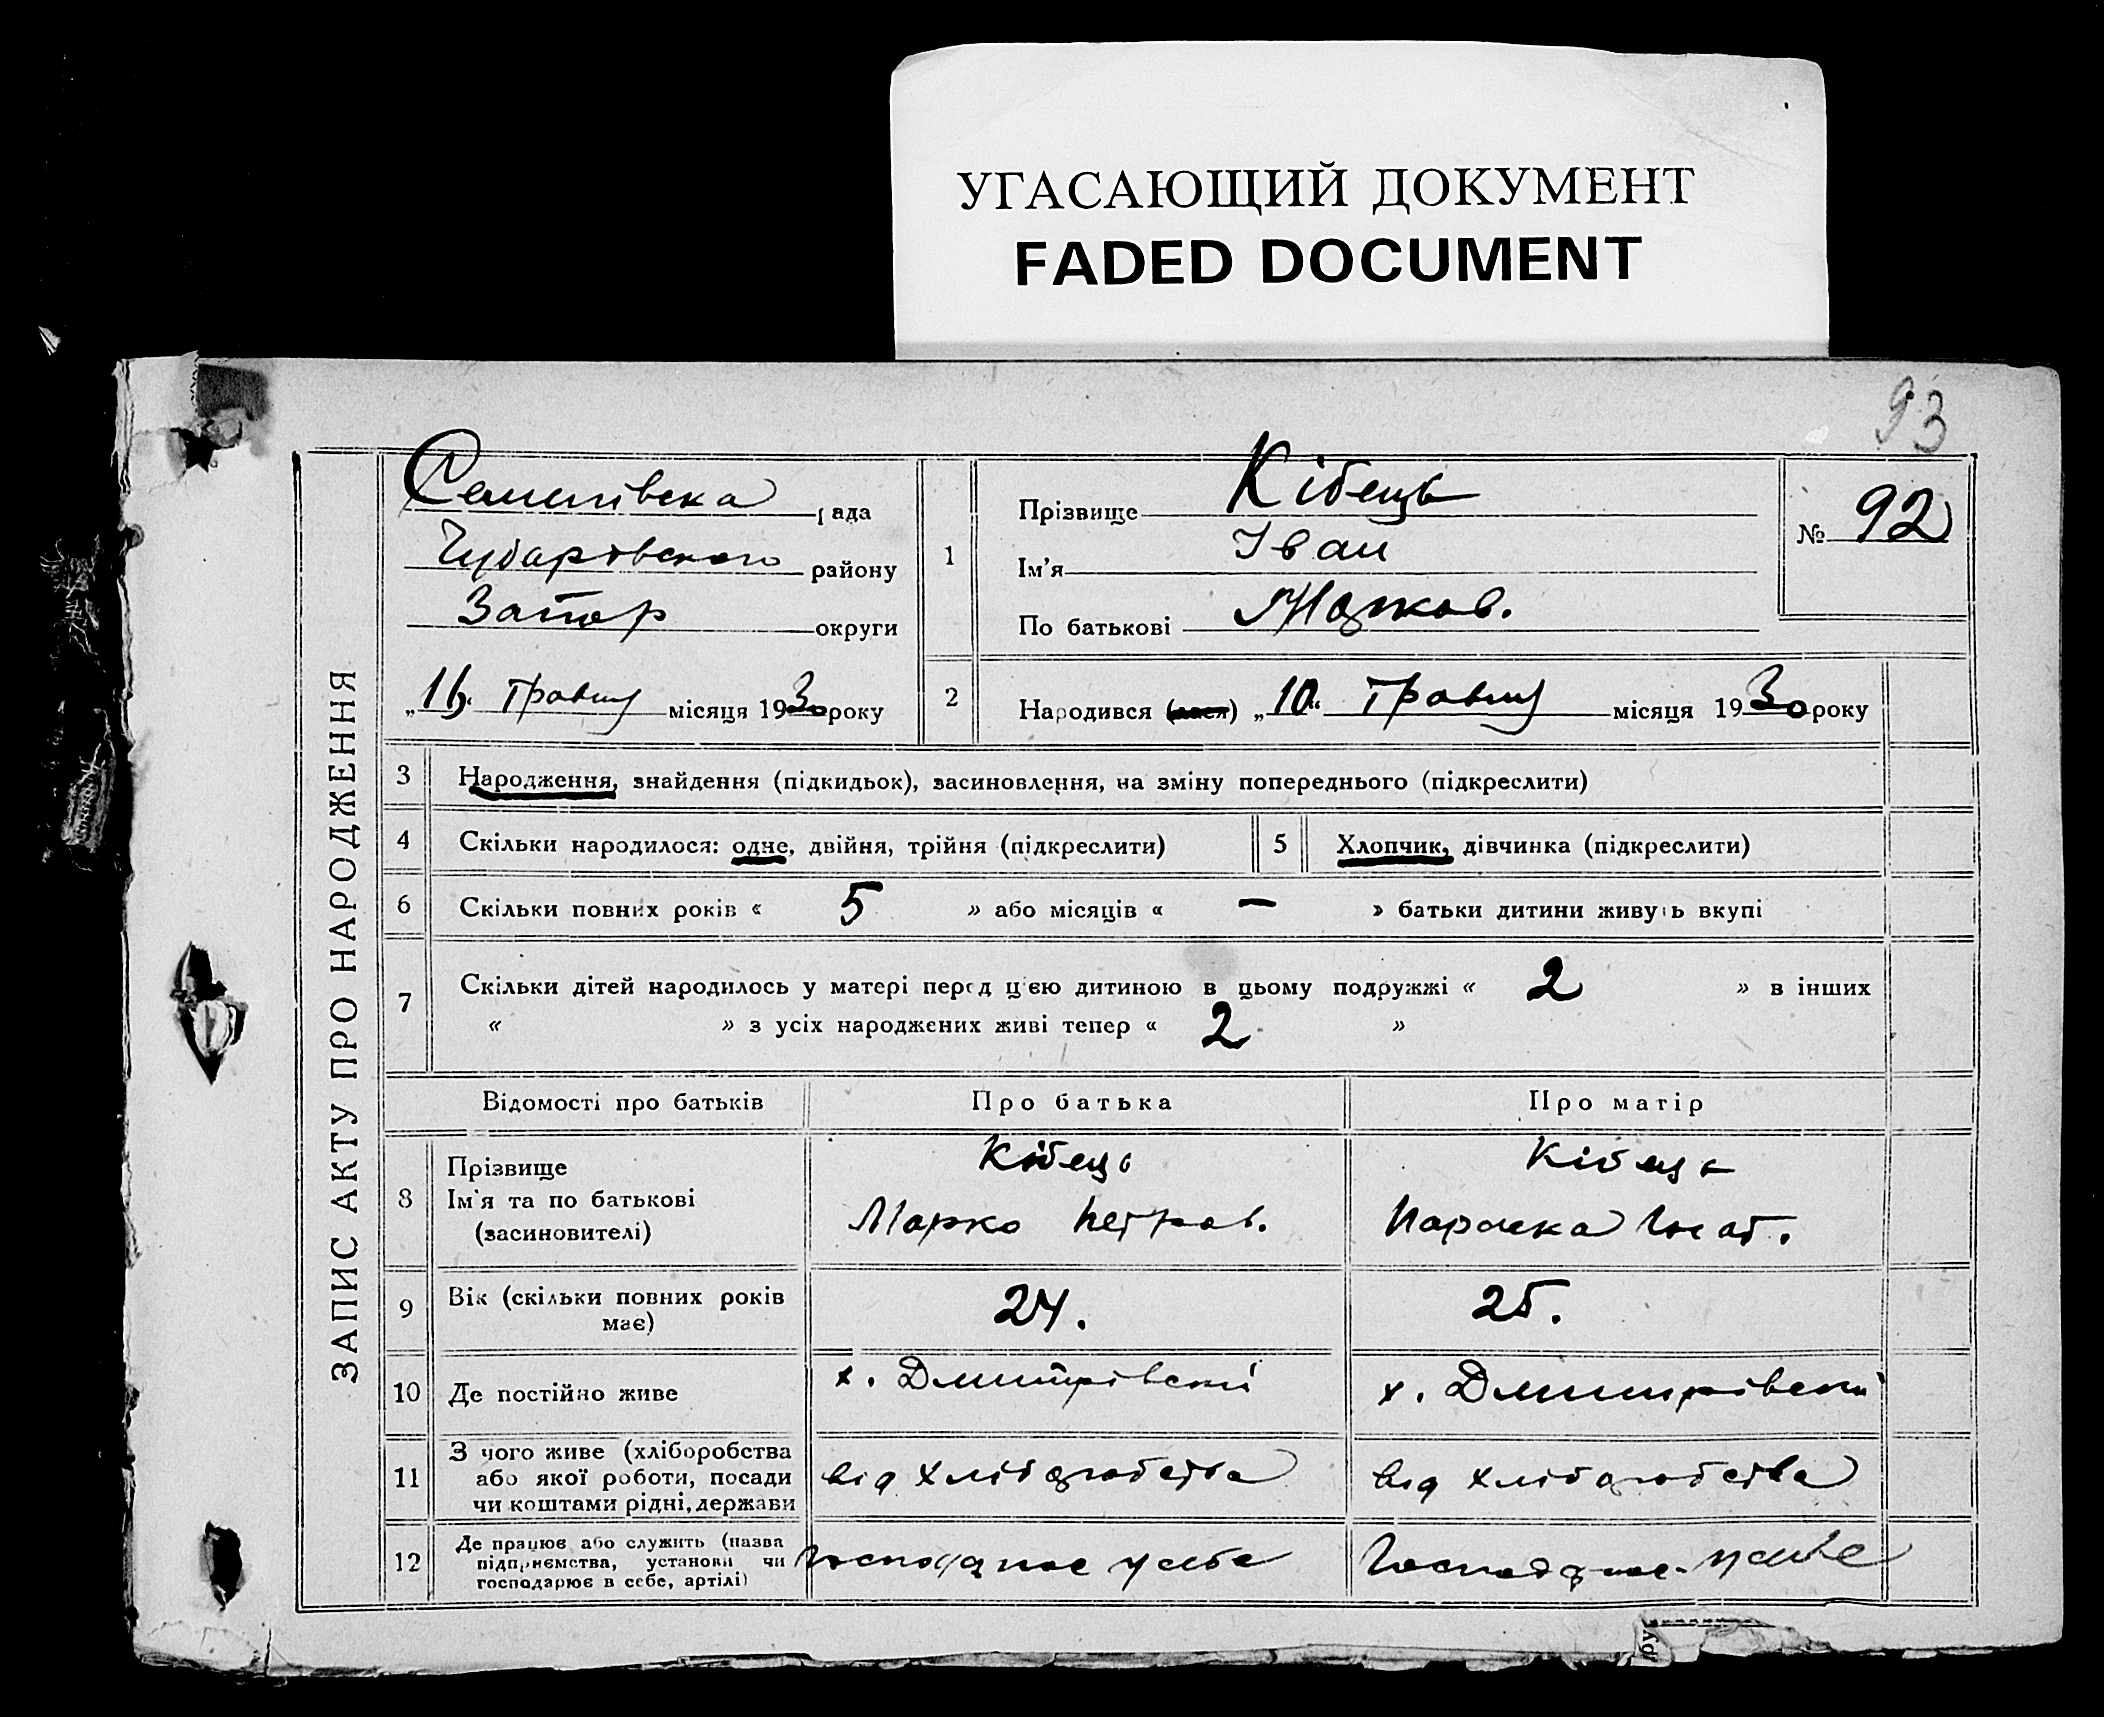 УГАСАЮЩИЙ ДОКУМЕНТ
FADED DOCUMENT
93
ЗАПИС АКТУ ПРО НАРОДЖЕННЯ
Семенівска рада
Чубарівського району
Запор округи
„16“ Травня місяця 1930 року
1
Прізвище Кібець
Ім'я Іван
По батькові Марков.
№ 92
2
Народився (лася) „10“ Травня місяця 1930 року
3 Народження, знайдення (підкидьок), засиновлення, на зміну попереднього (підкреслити)
4 Скільки народилося: одне, двійня, трійня (підкреслити)
5 Хлопчик, дівчинка (підкреслити)
6 Скільки повних років « 5 » або місяців « — » батьки дитини живуть вкупі
7 Скільки дітей народилось у матері перед цією дитиною в цьому подружжі « 2 » в інших
« » з усіх народжених живі тепер « 2 »
Відомості про батьків Про батька Про матір
8 Прізвище
Ім'я та по батькові
(засиновителі)
Кібець
Марко Петров.
Кібець
Параска Ігнат.
9 Вік (скільки повних років
має)
24.
25.
10 Де постійно живе
х. Дмитрівский
х. Дмитрівский
11 З чого живе (хліборобства
або якої роботи, посади
чи коштами рідні, держави
від хліборобства
від хліборобства
12 Де працює або служить (назва
підприємства, установи чи
господарює в себе, артілі)
Господарює у себе
Господарює у себе